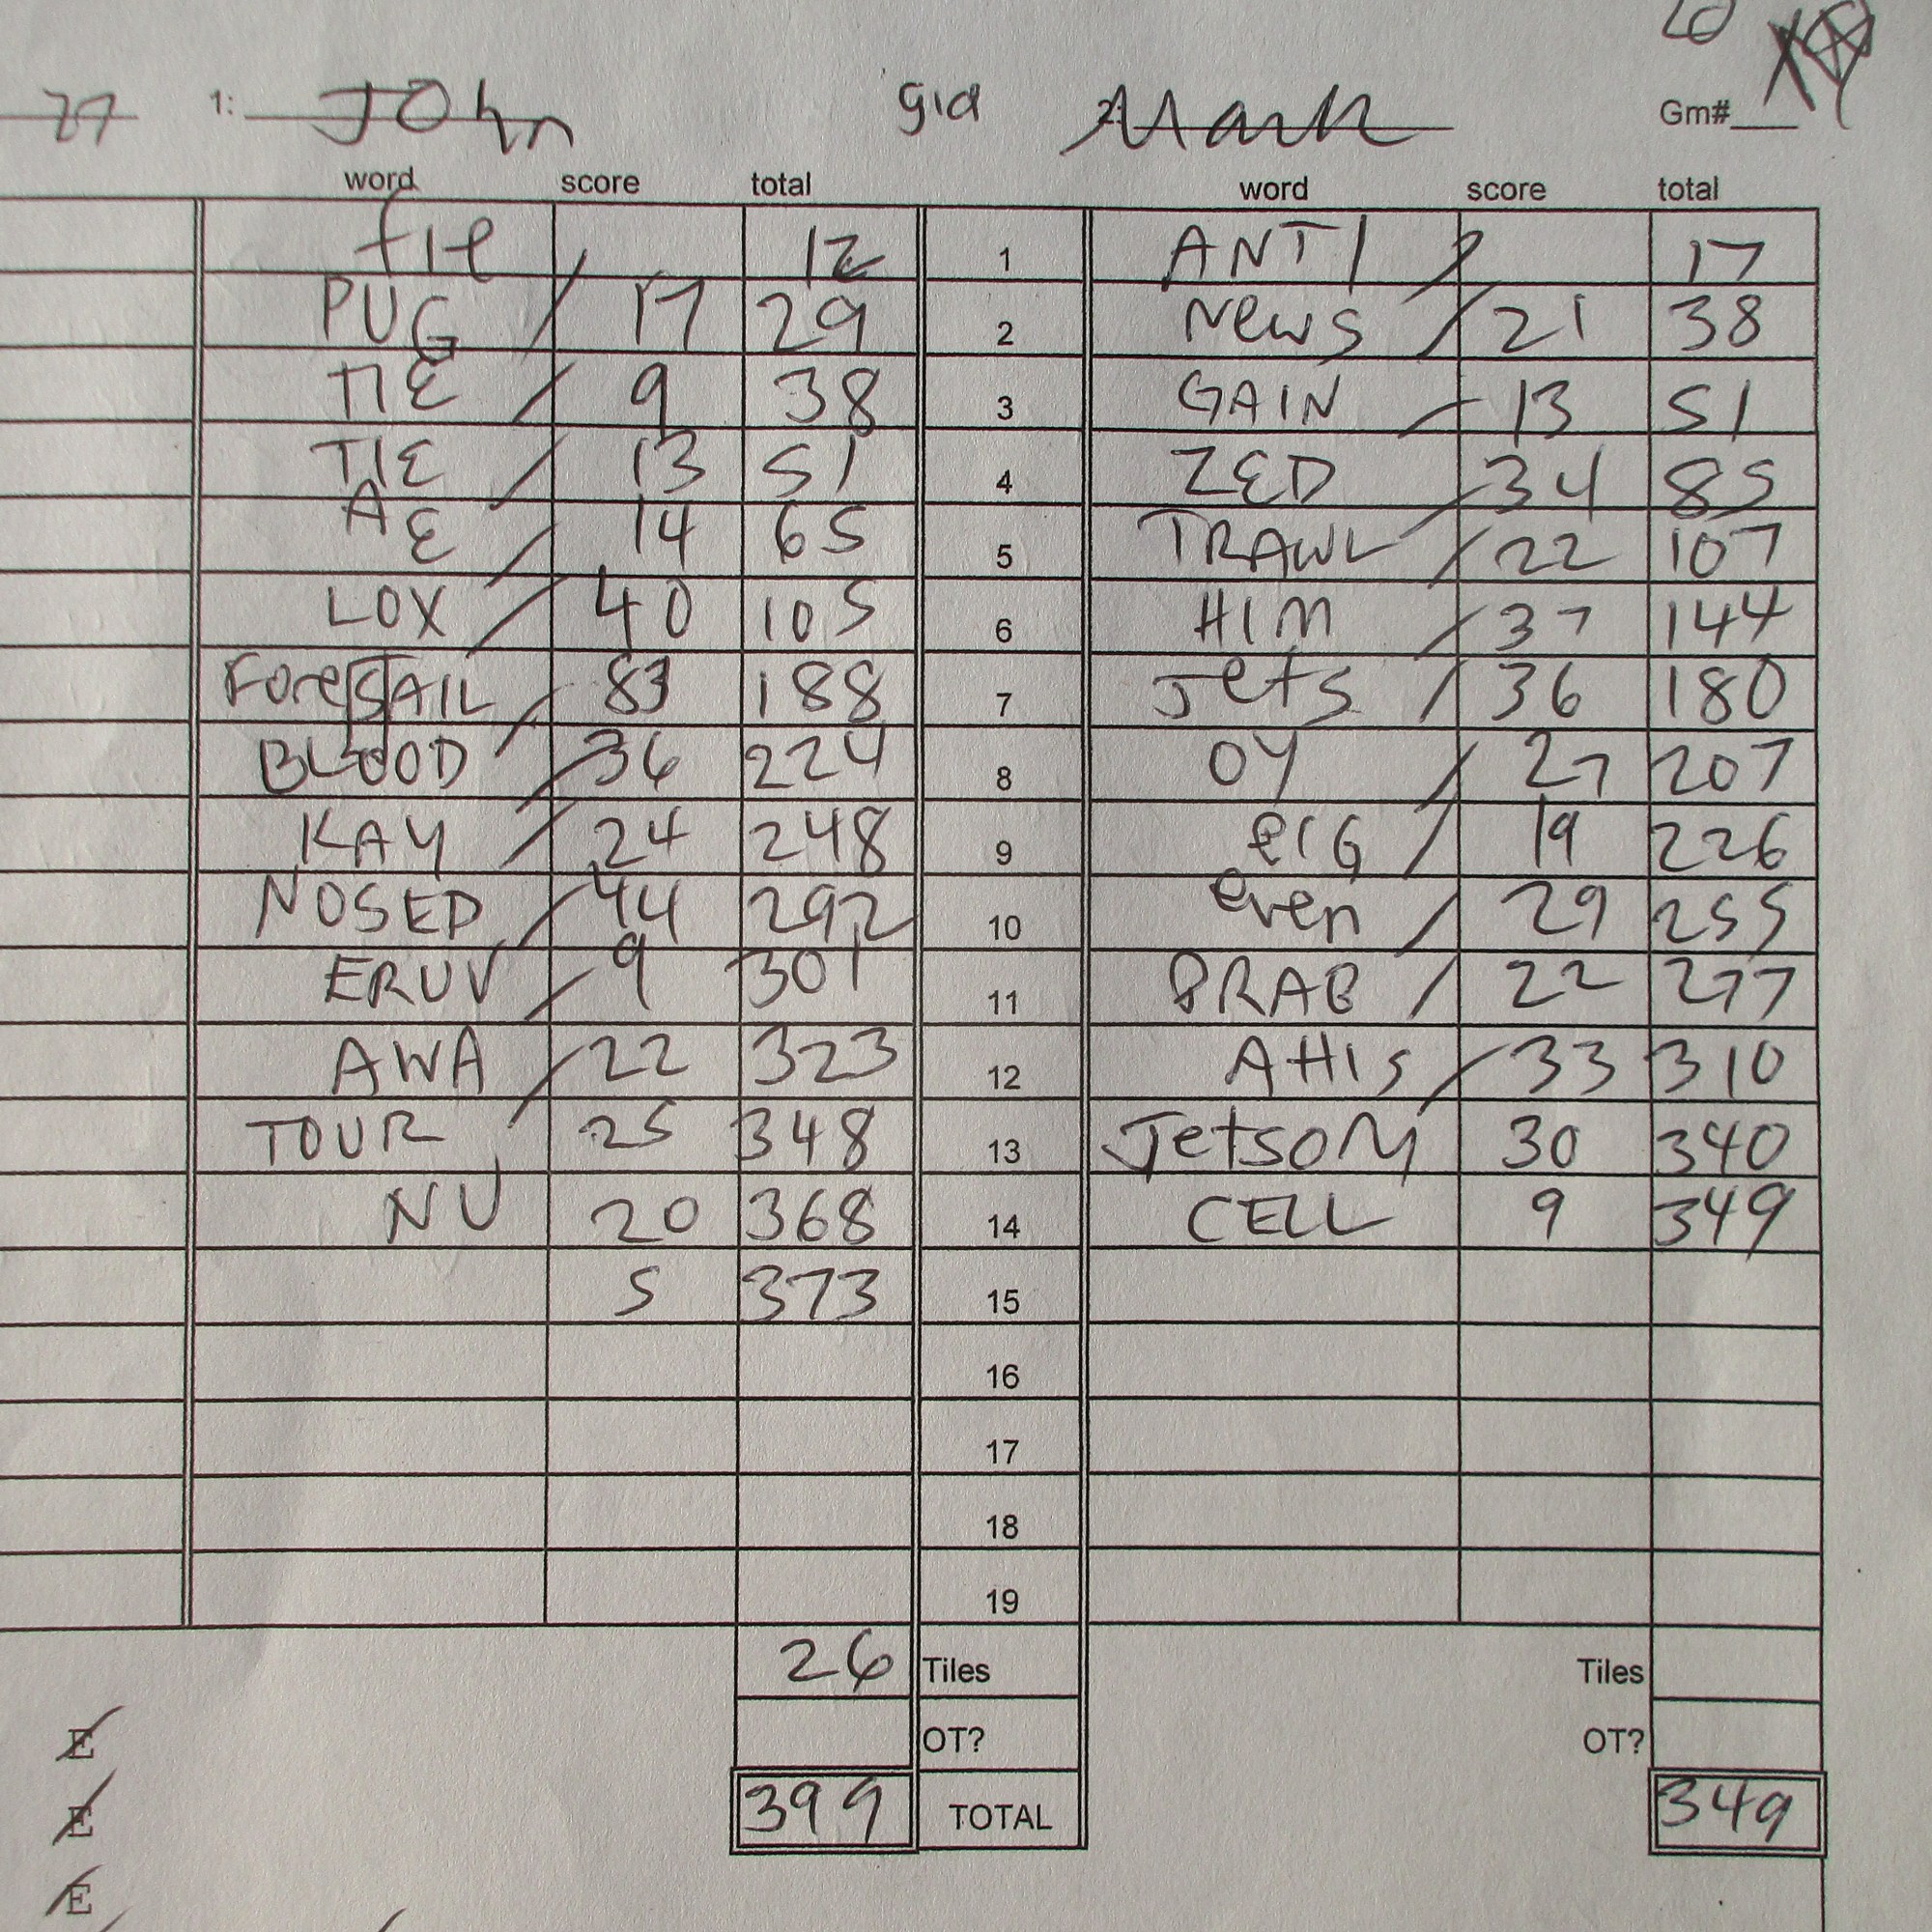 27 1: John gid 2: Mark Gm#
word score total word score total
fie 12 1 ANTI 17
PUG 17 29 2 News 21 38
TIE 9 38 3 GAIN 13 51
TIE 13 51 4 ZED 34 85
AE 14 65 5 TRAWL 22 107
LOX 40 105 6 HIM 37 144
ForeSAIL 83 188 7 Jets 36 180
BLOOD 36 224 8 OY 27 207
KAY 24 248 9 erG 19 226
NOSED 44 292 10 even 29 255
ERUV 9 301 11 22 277
AWA 22 323 12 AHIs 33 310
TOUR 25 348 13 JetsoM 30 340
NU 20 368 14 CELL 9 349
5 373 15
16
17
18
19
26 Tiles Tiles
OT? OT?
399 TOTAL 349
E
E
E